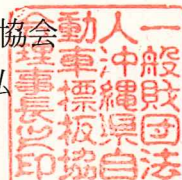 協会
一般財団法
人沖縄県自
動車標板協
会理事長之印